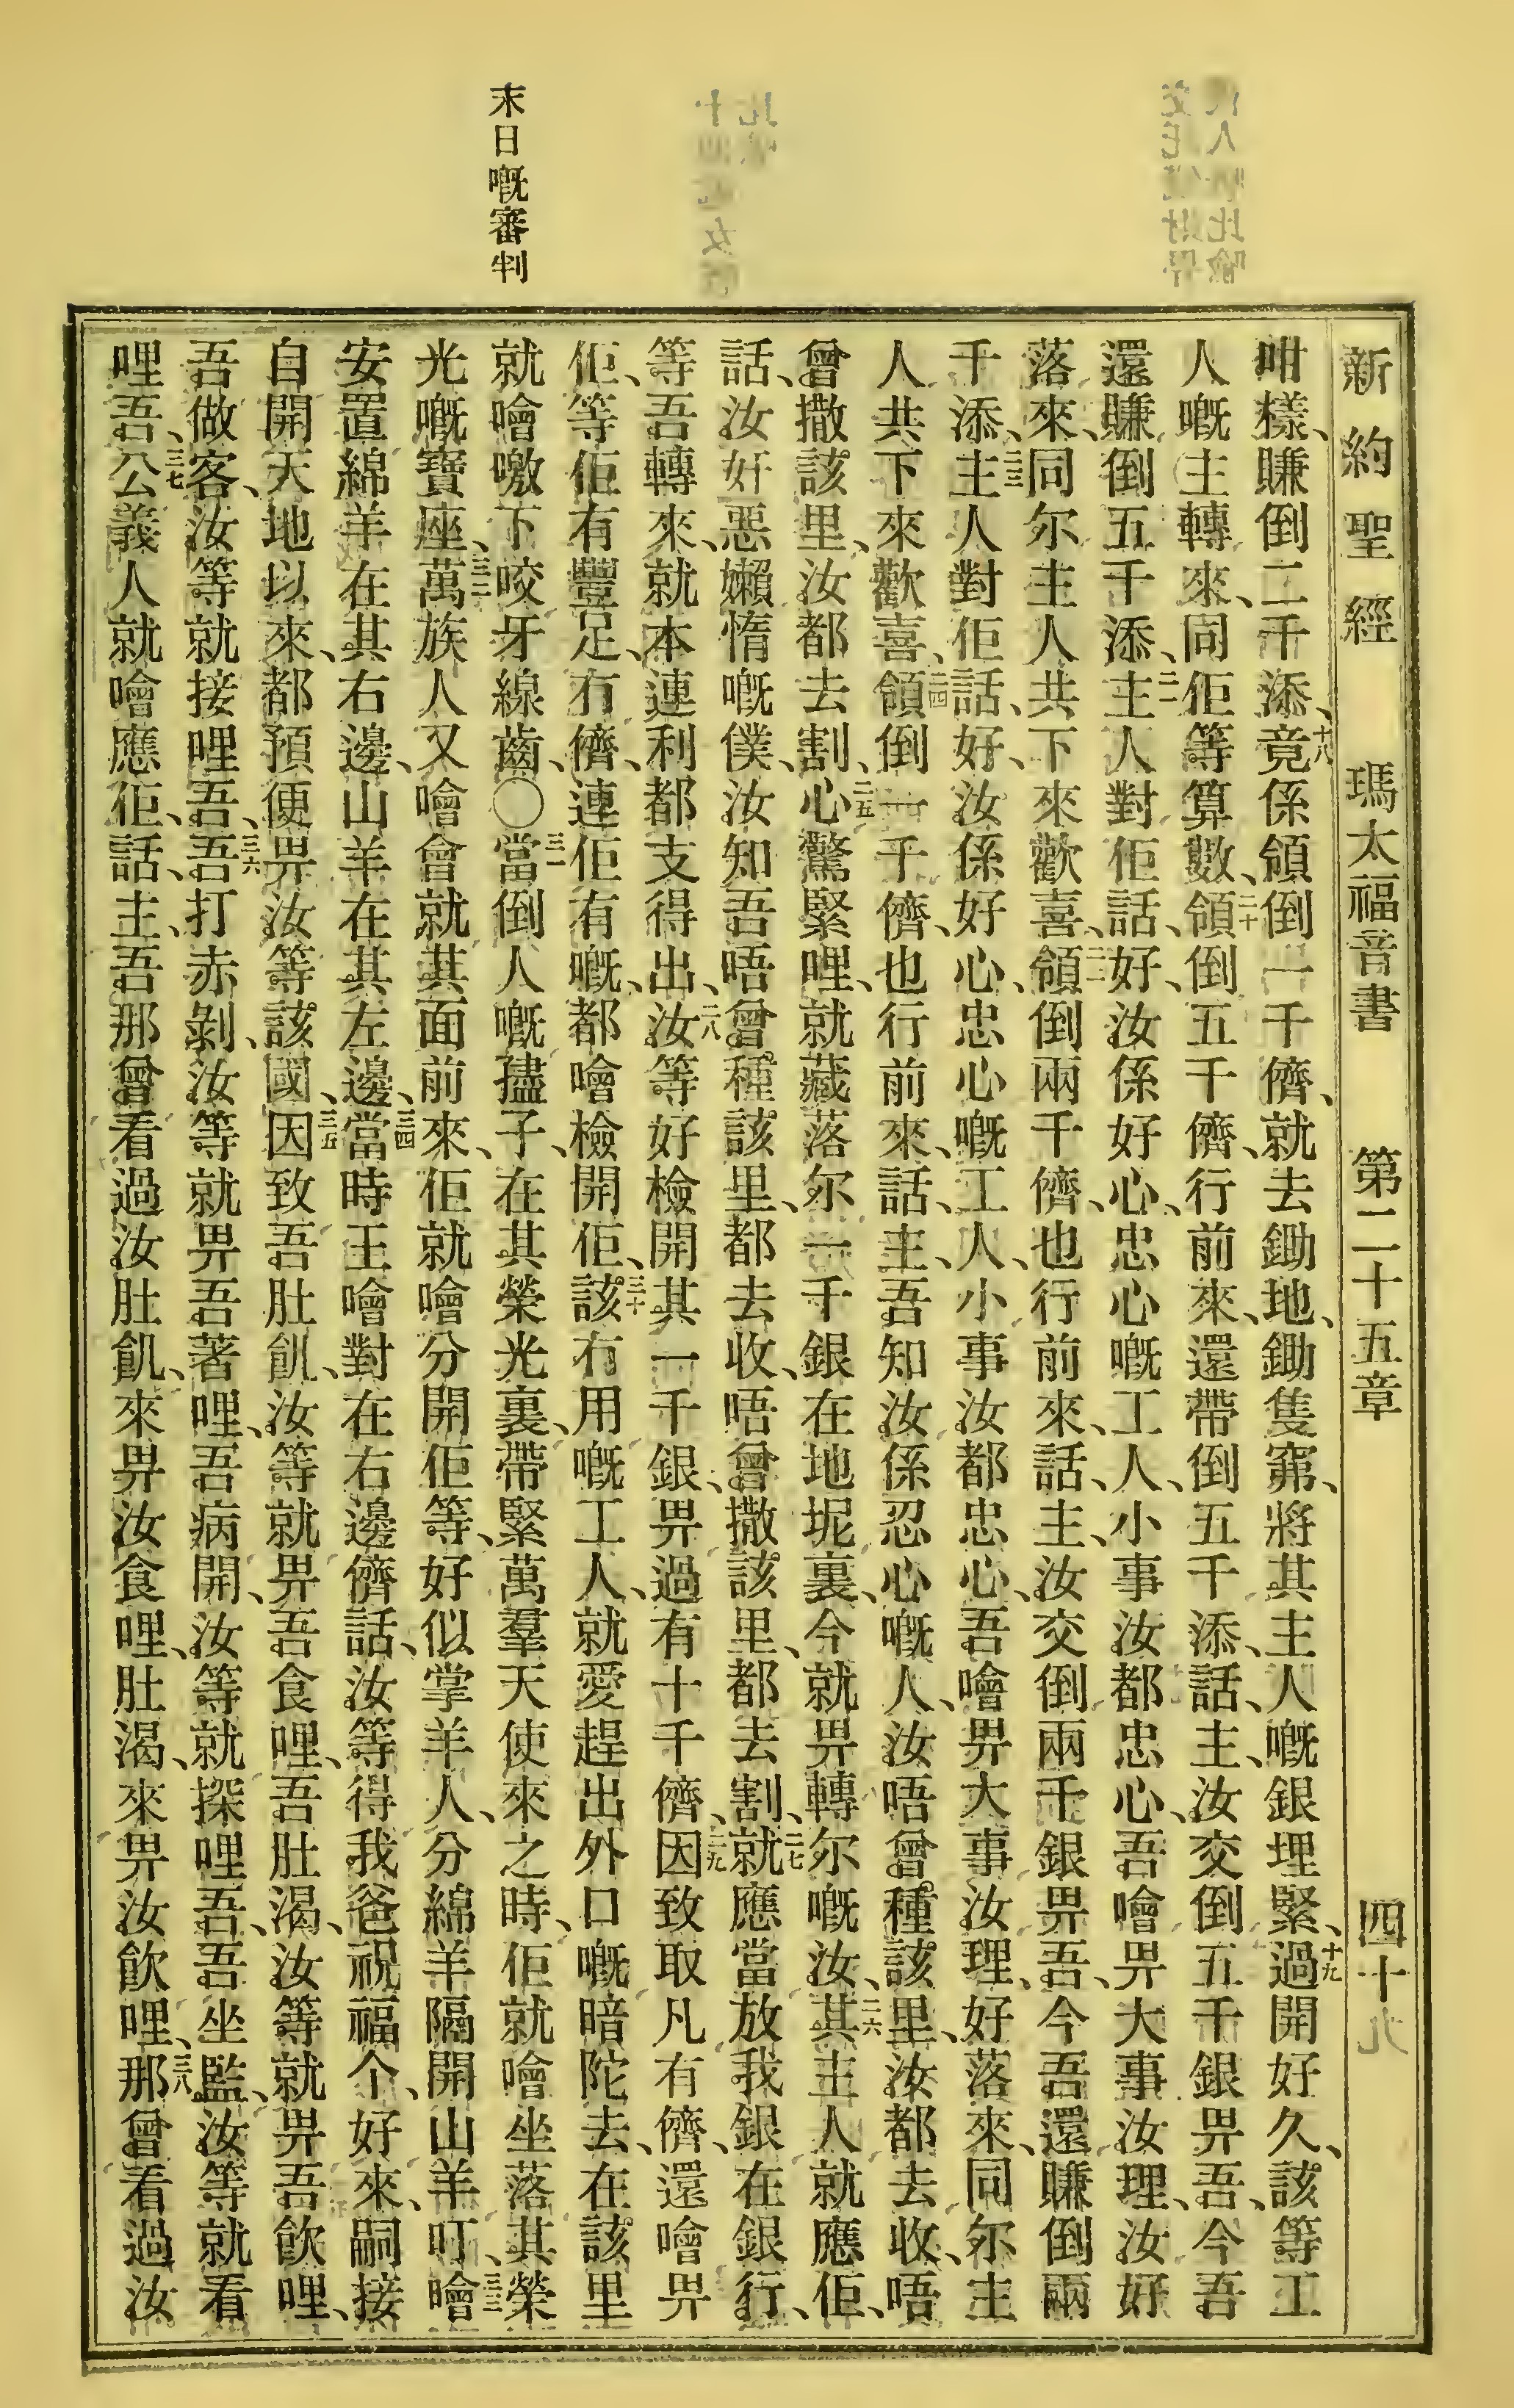 新約聖經　瑪太福音書　第二十五章　四十九
末日嘅審判
咁樣、賺倒二千添、十八竟係領倒一千儕、就去鋤地、鋤隻窸、將其主人嘅銀埋緊、十九過開好久、該等工
人嘅主轉來、同佢等算數、二十領倒五千儕、行前來、還帶倒五千添、話、主、汝交倒五千銀畀吾、今吾
還賺倒五千添、二一主人對佢話、好、汝係好心、忠心嘅工人、小事汝都忠心、吾噲畀大事汝理、汝好
落來、同尔主人共下來歡喜、二二領倒兩千儕、也行前來、話、主、汝交倒兩千銀畀吾、今吾還賺倒兩
千添、二三主人對佢話、好、汝係好心、忠心嘅工人、小事汝都忠心、吾噲畀大事汝理、好落來、同尔主
人共下來歡喜、二四領倒一千儕、也行前來、話、主、吾知汝係忍心嘅人、汝唔曾種該里、汝都去收、唔
曾撒該里、汝都去割、二五心驚緊哩、就藏落尔一千銀在地坭裏、今就畀轉尔嘅汝、二六其主人就應佢、
話、汝奸惡嬾惰嘅僕、汝知吾唔曾種該里、都去收、唔曾撒該里、都去割、二七就應當放我銀在銀行、
等吾轉來、就本連利都支得出、二八汝等好檢開其一千銀、畀過有十千儕、二九因致取凡有儕、還噲畀
佢、等佢有豐足、冇儕、連佢有嘅、都噲檢開佢、三十該冇用嘅工人、就愛趕出外口嘅暗陀去、在該里
就噲噭下咬牙線齒、〇三一當倒人嘅孻子、在其榮光裏、帶緊萬羣天使來之時、佢就噲坐落其榮
光嘅寶座、三二萬族人又噲會就其面前來、佢就噲分開佢等、好似掌羊人、分綿羊隔開山羊叮、三三噲
安置綿羊在其右邊、山羊在其左邊、三四當時王噲對在右邊儕話、汝等得我爸祝福个、好來、嗣接
自開天地以來、都預便畀汝等該國、三五因致吾肚飢、汝等就畀吾食哩、吾肚渴、汝等就畀吾飲哩、
吾做客、汝等就接哩吾、三六吾打赤剝、汝等就畀吾著哩、吾病開、汝等就探哩吾、吾坐監、汝等就看
哩吾、三七公義人就噲應佢、話、主、吾那曾看過汝肚飢、來畀汝食哩、肚渴、來畀汝飲哩、三八那曾看過汝